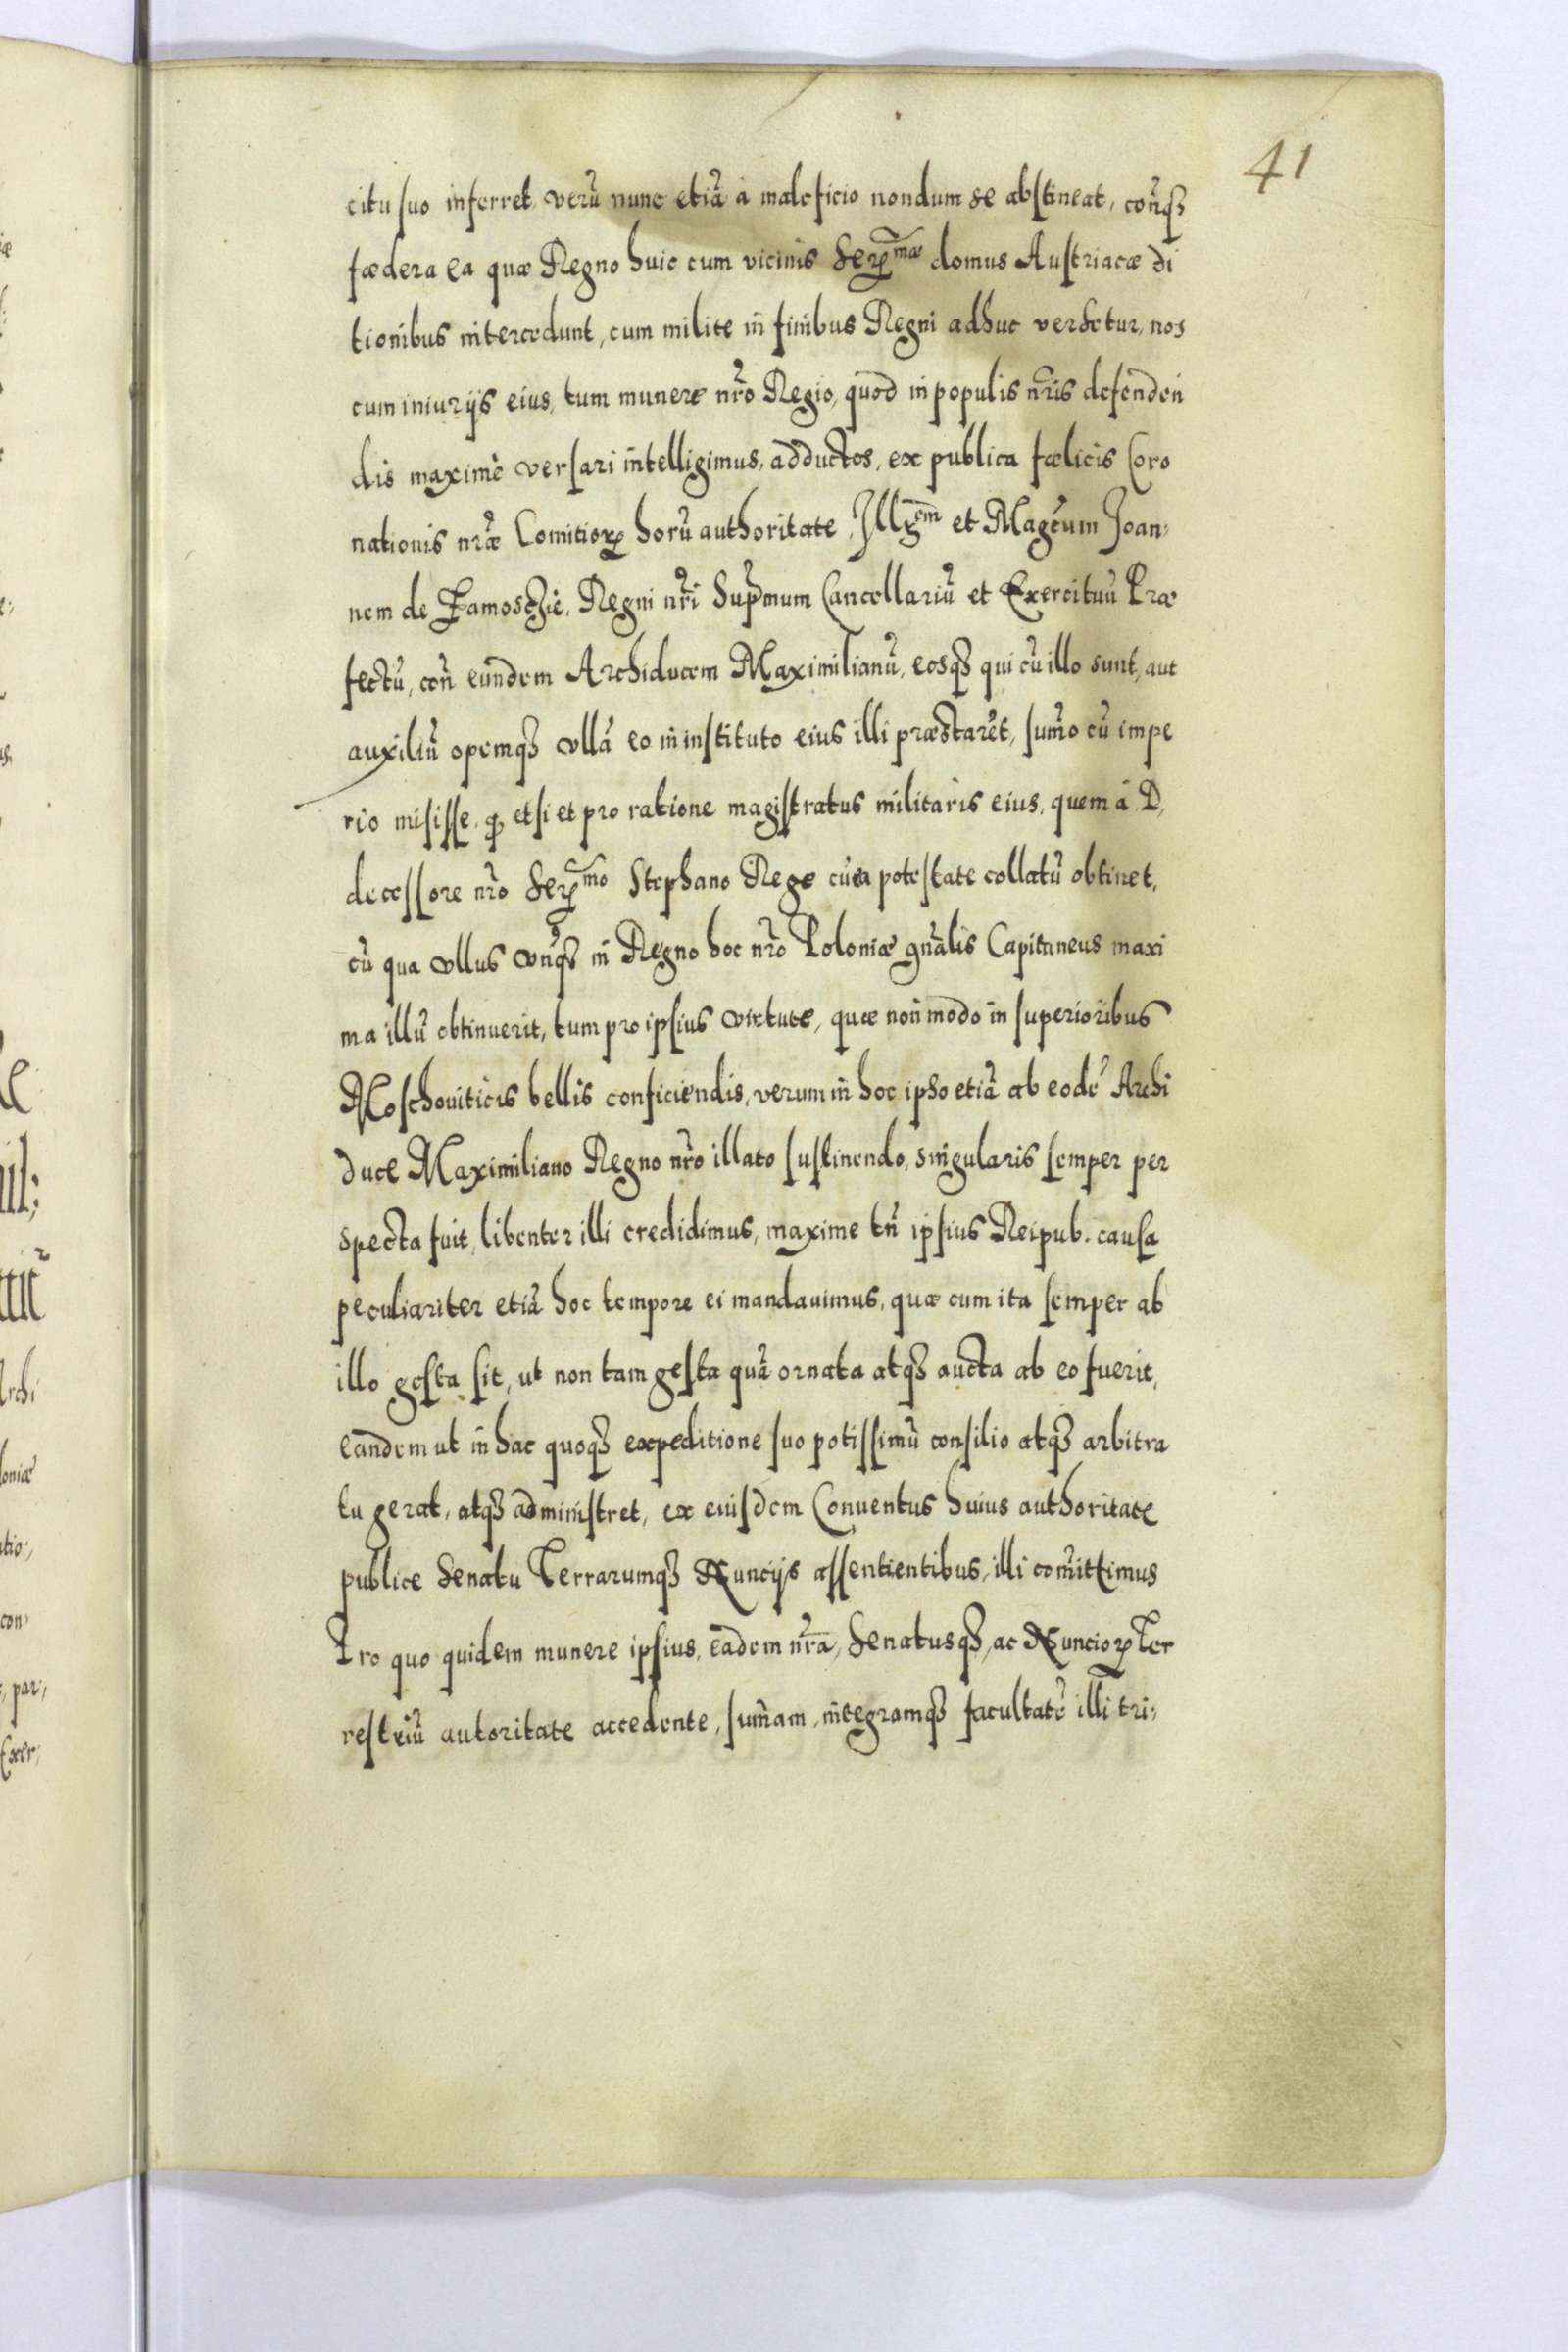 41
citu suo inferret, verũ nunc etiã à maleficio nondum se abstineat, coñqʒ
fœdera ea quæ Regno huic cum vicinis Serꝫmæ domus Austriacæ di
tionibus intercedunt, cum milite in finibus Regni adhuc versetur, nos
cum iniurijs eius, tum munere nr̃o Regio, quod in populis nr̃is defenden
dis maximè versari intelligimus, adductos, ex publica fœlicis Coro
nationis nr̃æ Comitioꝝ horũ authoritate, Illꝫem et Magcum Joan,
nem de Zamoschie, Regni nr̃i Supmum Cancellariũ et Exercituũ Præ
fectũ, con̄ eundem Archiducem Maximilianũ, eosqʒ qui cũ illo sunt, aut
auxiliũ opemqʒ vllã eo in instituto eius illi præstarẽt, sum̃o cũ impe
rio misisse. etsi et pro ratione magistratus militaris eius, quem à D,
decessore nr̃o Serꝫmo Stephano Rege cũ ea potestate collatũ obtinet,
cũ qua vllus vnqʒ in Regno hoc nr̃o Poloniæ gnãlis Capitaneus maxi
ma illũ obtinuerit, tum pro ipsius virtute, quæ non modo in superioribus
Moschouiticis bellis conficiendis, verum in hoc ipso etiã ab eodẽ Archi
duce Maximiliano Regno nr̃o illato sustinendo, singularis semper per
specta fuit, libenter illi credidimus, maxime tñ ipsius Reipub. causa
peculiariter etiã hoc tempore ei mandauimus, quæ cum ita semper ab
illo gesta sit, ut non tam gesta quã ornata atqʒ aucta ab eo fuerit,
eandem ut in hac quoqʒ expeditione suo potissimũ consilio atqʒ arbitra
tu gerat, atqʒ administret, ex eiusdem Conuentus huius authoritate
publice Senatu Terrarumqʒ Nuncijs assentientibus, illi com̃ittimus
Pro quo quidem munere ipsius, eadem nr̃a, Senatusqʒ, ac Nuncioꝝ Ter
restriũ autoritate accedente, sum̃am, integramqʒ facultatẽ illi tri,